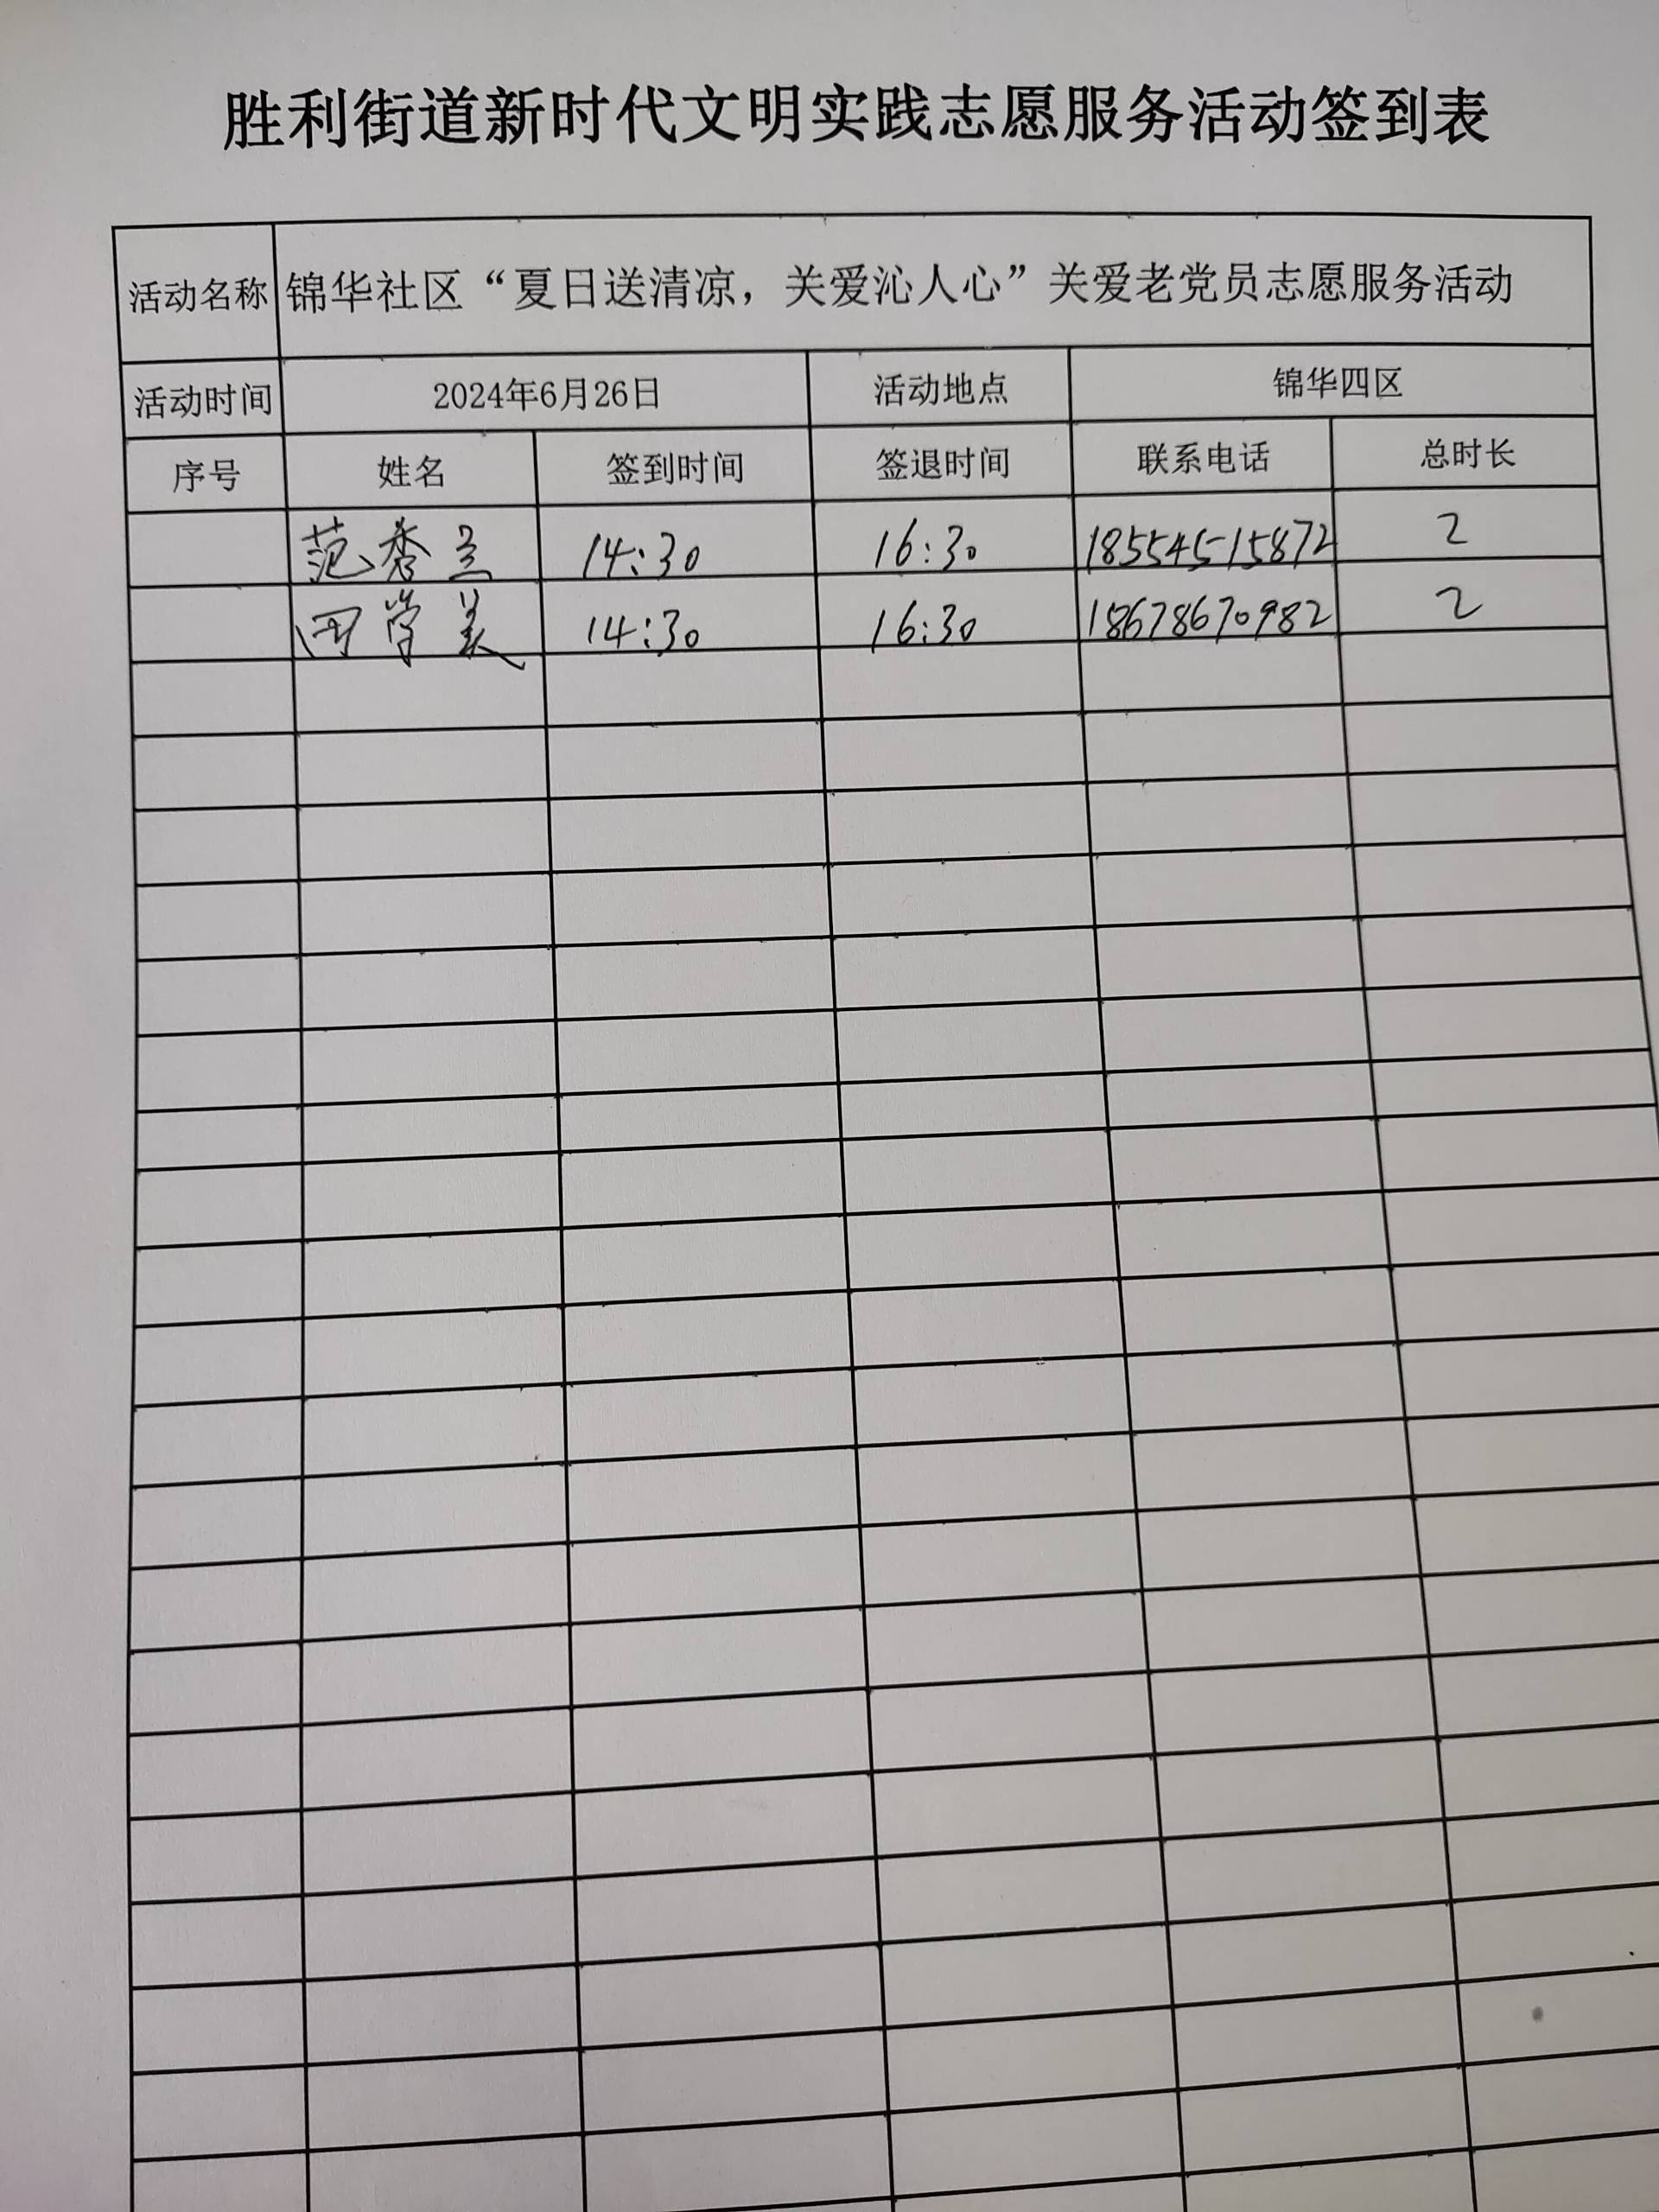 胜利街道新时代文明实践志愿服务活动签到表
活动名称 锦华社区“夏日送清凉，关爱沁人心”关爱老党员志愿服务活动
活动时间 2024年6月26日 活动地点 锦华四区
序号 姓名 签到时间 签退时间 联系电话 总时长
范秀兰 14:30 16:30 18554515872 2
田学美 14:30 16:30 18678670982 2